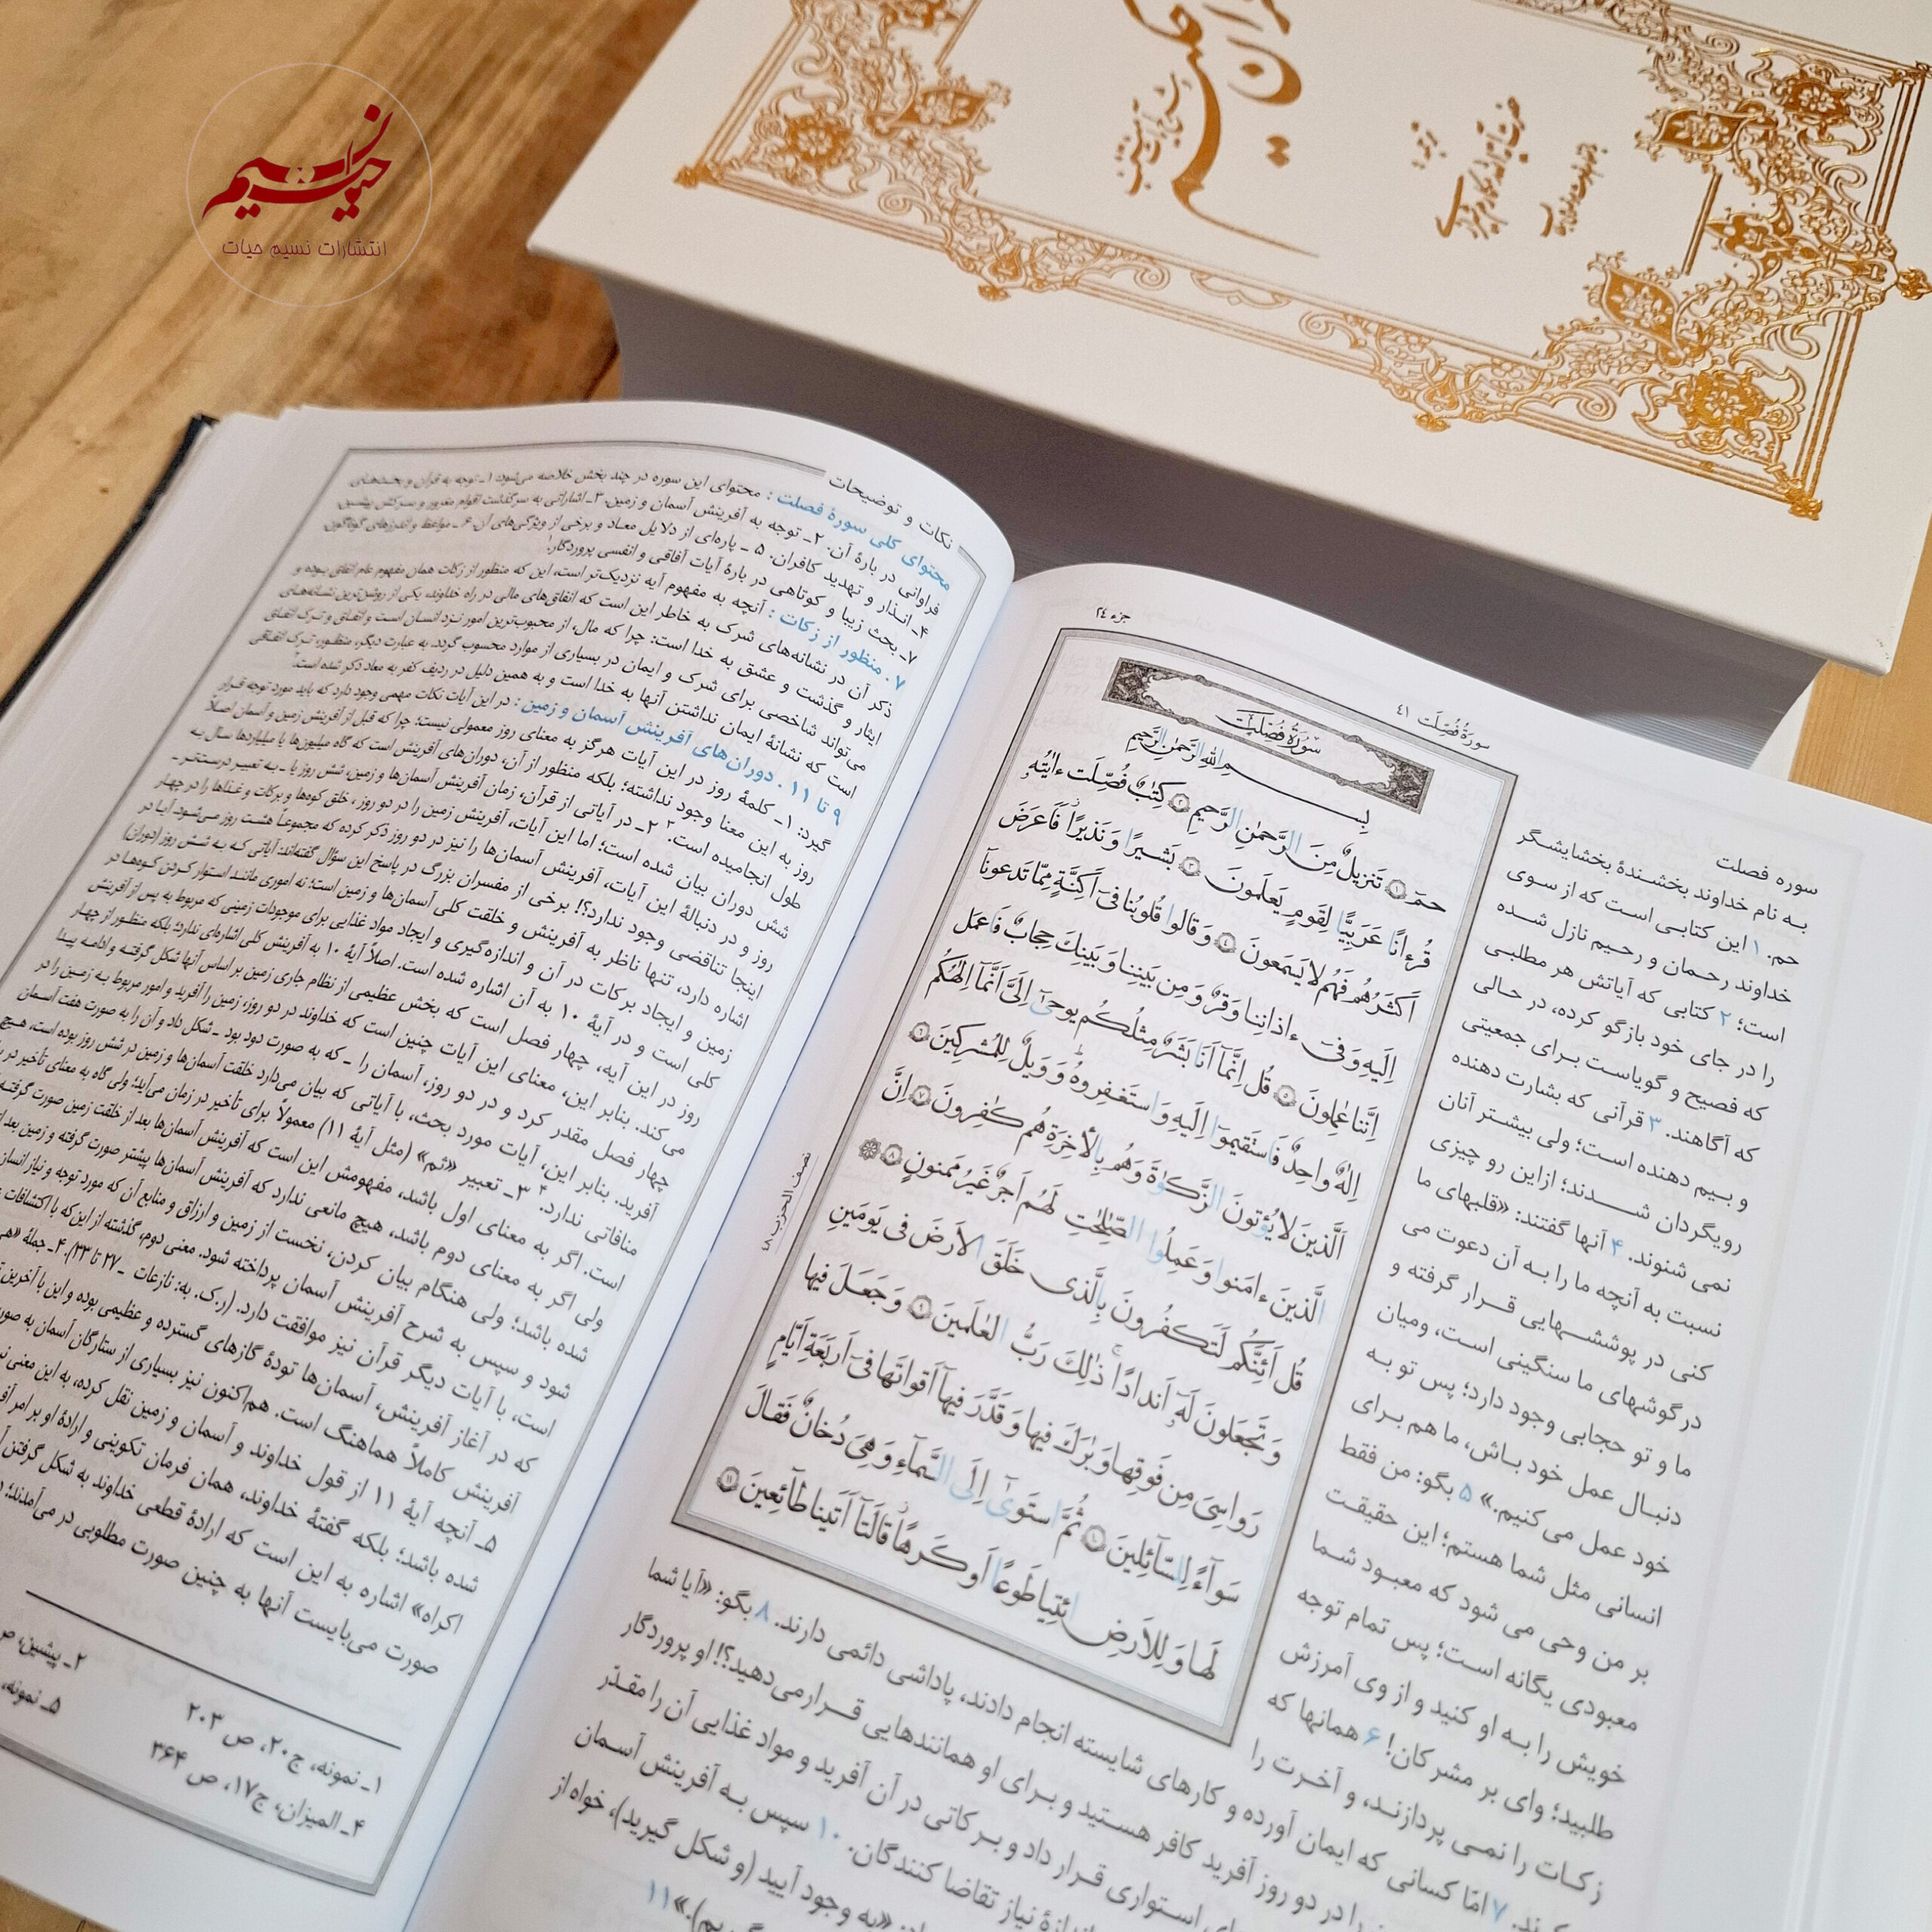 نسیم حیات
انتشارات نسیم حیات
قرآن حکیم
ترجمه:
جزء ٢٤
سورة فصلت ٤١
سُورَةُ فُصِّلَت
بِسمِ اللهِ الرَّحمٰنِ الرَّحيمِ
حمٓ ١ تَنزيلٌ مِنَ الرَّحمٰنِ الرَّحيمِ ٢ كِتٰبٌ فُصِّلَت ءايٰتُهُ
قُرءانًا عَرَبِيًّا لِقَومٍ يَعلَمونَ ٣ بَشيرًا وَ نَذيرًا فَاَعرَضَ
اَكثَرُهُم فَهُم لا يَسمَعونَ ٤ وَ قالوا قُلوبُنا فى اَكِنَّةٍ مِمّا تَدعونا
اِلَيهِ وَ فى ءاذانِنا وَقرٌ وَ مِن بَينِنا وَ بَينِكَ حِجابٌ فَاعمَل
اِنَّنا عٰمِلونَ ٥ قُل اِنَّما اَنَا بَشَرٌ مِثلُكُم يوحىٰ اِلَىَّ اَنَّما اِلٰهُكُم
اِلٰهٌ واحِدٌ فَاستَقيموا اِلَيهِ وَ استَغفِروهُ وَ وَيلٌ لِلمُشرِكينَ ٦
اَلَّذينَ لا يُؤتونَ الزَّكوٰةَ وَ هُم بِالأخِرَةِ هُم كٰفِرونَ ٧ اِنَّ
الَّذينَ ءامَنوا وَ عَمِلُوا الصّٰلِحٰتِ لَهُم اَجرٌ غَيرُ مَمنونٍ ٨
قُل اَئِنَّكُم لَتَكفُرونَ بِالَّذى خَلَقَ الاَرضَ فى يَومَينِ
وَ تَجعَلونَ لَهُ اَندادًا ذٰلِكَ رَبُّ العٰلَمينَ ٩ وَ جَعَلَ فيها
رَواسِىَ مِن فَوقِها وَ بٰرَكَ فيها وَ قَدَّرَ فيها اَقواتَها فى اَربَعَةِ اَيّامٍ
سَواءً لِلسّائِلينَ ١٠ ثُمَّ استَوىٰ اِلَى السَّماءِ وَ هِىَ دُخانٌ فَقالَ
لَها وَ لِلاَرضِ ائتِيا طَوعًا اَو كَرهًا قالَتا اَتَينا طائِعينَ ١١
نصف الحزب ٤٨
سوره فصلت
به نام خداوند بخشندهٔ بخشایشگر
حم. ۱ این کتابی است که از سوی
خداوند رحمان و رحیم نازل شده
است؛ ۲ کتابی که آیاتش هر مطلبی
را در جای خود بازگو کرده، در حالی
که فصیح و گویاست برای جمعیتی
که آگاهند. ۳ قرآنی که بشارت دهنده
و بیم دهنده است؛ ولی بیشتر آنان
رویگردان شدند؛ ازاین رو چیزی
نمی شنوند. ۴ آنها گفتند: «قلبهای ما
نسبت به آنچه ما را به آن دعوت می
کنی در پوششهایی قرار گرفته و
در گوشهای ما سنگینی است، ومیان
ما و تو حجابی وجود دارد؛ پس تو به
دنبال عمل خود باش، ما هم برای
خود عمل می کنیم.» ۵ بگو: من فقط
انسانی مثل شما هستم؛ این حقیقت
بر من وحی می شود که معبود شما
معبودی یگانه است؛ پس تمام توجه
خویش را به او کنید و از وی آمرزش
طلبید؛ وای بر مشرکان! ۶ همانها که
زکات را نمی پردازند، و آخرت را
۷ امّا کسانی که ایمان آورده و کارهای شایسته انجام دادند، پاداشی دائمی دارند. ۸ بگو: «آیا شما
را در دو روز آفرید کافر هستید و برای او همانندهایی قرارمی‌دهید؟! او پروردگار
استواری قرار داد و برکاتی در آن آفرید و مواد غذایی آن را مقدّر
نیاز تقاضا کنندگان. ۱۰ سپس به آفرینش آسمان
«به وجود آیید (و شکل گیرید)، خواه از
۱۱
نکات و توضیحات
محتوای کلی سورهٔ فصلت : محتوای این سوره در چند بخش خلاصه می‌شود: ۱ـ توجه به قرآن و بحث‌های
فراوانی در بارهٔ آن. ۲ـ توجه به آفرینش آسمان و زمین. ۳ـ اشاراتی به سرگذشت اقوام مغرور و سرکش پیشین
۴ـ انذار و تهدید کافران. ۵ ـ پاره‌ای از دلایل معاد و برخی از ویژگی‌های آن. ۶ـ مواعظ و اندرزهای گوناگون
۷ـ بحث زیبا و کوتاهی در بارهٔ آیات آفاقی و انفسی پروردگار.
۷. منظور از زکات : آنچه به مفهوم آیه نزدیک‌تر است، این که منظور از زکات همان مفهوم عام انفاق بوده و
ذکر آن در نشانه‌های شرک به خاطر این است که انفاق‌های مالی در راه خداوند، یکی از روشن‌ترین نشانه‌های
ایثار و گذشت و عشق به خدا است: چرا که مال، از محبوب‌ترین امور نزد انسان است و انفاق و ترک انفاق
می‌تواند شاخصی برای شرک و ایمان در بسیاری از موارد محسوب گردد. به عبارت دیگر، منظور، ترک انفاقی
است که نشانهٔ ایمان نداشتن آنها به خدا است و به همین دلیل در ردیف کفر به معاد ذکر شده است.
۹ تا ۱۱ . دوران‌های آفرینش آسمان و زمین : در این آیات نکات مهمی وجود دارد که باید مورد توجه قرار
گیرد: ۱ـ کلمهٔ روز در این آیات هرگز به معنای روز معمولی نیست؛ چرا که قبل از آفرینش زمین و آسمان اصلاً
روز به این معنا وجود نداشته؛ بلکه منظور از آن، دوران‌های آفرینش است که گاه میلیون‌ها یا میلیاردها سال به
طول انجامیده است. ۲ـ در آیاتی از قرآن، زمان آفرینش آسمان‌ها و زمین، شش روز یا ـ به تعبیر درست‌تر ـ
شش دوران بیان شده است؛ اما این آیات، آفرینش زمین را در دو روز ، خلق کوه‌ها و برکات و غذاها را در چهار
روز و در دنبالهٔ این آیات، آفرینش آسمان‌ها را نیز در دو روز ذکر کرده که مجموعاً هشت روز می‌شود. آیا در
اینجا تناقضی وجود ندارد؟! برخی از مفسران بزرگ در پاسخ این سؤال گفته‌اند: آیاتی که به شش روز (دوران)
اشاره دارد، تنها ناظر به آفرینش و خلقت کلی آسمان‌ها و زمین است؛ نه اموری مانند استوار کردن کوه‌ها در
زمین و ایجاد برکات در آن و اندازه‌گیری و ایجاد مواد غذایی برای موجودات زمینی که مربوط به پس از آفرینش
کلی است و در آیهٔ ۱۰ به آن اشاره شده است. اصلاً آیهٔ ۱۰ به آفرینش کلی اشاره‌ای ندارد؛ بلکه منظور از چهار
روز در این آیه، چهار فصل است که بخش عظیمی از نظام جاری زمین بر اساس آنها شکل گرفته و ادامه پیدا
می‌کند. بنابر این، معنای این آیات چنین است که خداوند در دو روز، زمین را آفرید و امور مربوط به زمین را در
چهار فصل مقدر کرد و در دو روز، آسمان را ـ که به صورت دود بود ـ شکل داد و آن را به صورت هفت آسمان
آفرید. بنابر این، آیات مورد بحث، با آیاتی که بیان می‌دارد خلقت آسمان‌ها و زمین در شش روز بوده است، هیچ
منافاتی ندارد. ۳ـ تعبیر «ثم» (مثل آیهٔ ۱۱) معمولاً برای تأخیر در زمان می‌آید؛ ولی گاه به معنای تأخیر در
است. اگر به معنای اول باشد، مفهومش این است که آفرینش آسمان‌ها بعد از خلقت زمین صورت گرفته
ولی اگر به معنای دوم باشد، هیچ مانعی ندارد که آفرینش آسمان‌ها پیشتر صورت گرفته و زمین بعد
شده باشد؛ ولی هنگام بیان کردن، نخست از زمین و ارزاق و منابع آن که مورد توجه و نیاز
شود و سپس به شرح آفرینش آسمان پرداخته شود. معنی دوم، گذشته از این‌که با اکتشافات
است، با آیات دیگر قرآن نیز موافقت دارد. (ر.ک. به: نازعات ـ ۲۷ تا ۳۳). ۴ـ جملهٔ
که در آغاز آفرینش، آسمان‌ها تودهٔ گازهای گسترده و عظیمی بوده و این با آخرین
آفرینش کاملاً هماهنگ است. هم‌اکنون نیز بسیاری از ستارگان آسمان به
۵ـ آنچه آیهٔ ۱۱ از قول خداوند و آسمان و زمین نقل کرده، به این معنی
شده باشد؛ بلکه گفتهٔ خداوند، همان فرمان تکوینی و ارادهٔ او بر امر
اکراه» اشاره به این است که ارادهٔ قطعی خداوند به شکل گرفتن
صورت می‌بایست آنها به چنین صورت مطلوبی در می‌آمدند؛
۱ـ نمونه، ج۲۰، ص ۲۰۳
۲ـ پیشین،
۴ـ المیزان، ج۱۷، ص ۳۶۴
۵ـ نمونه،